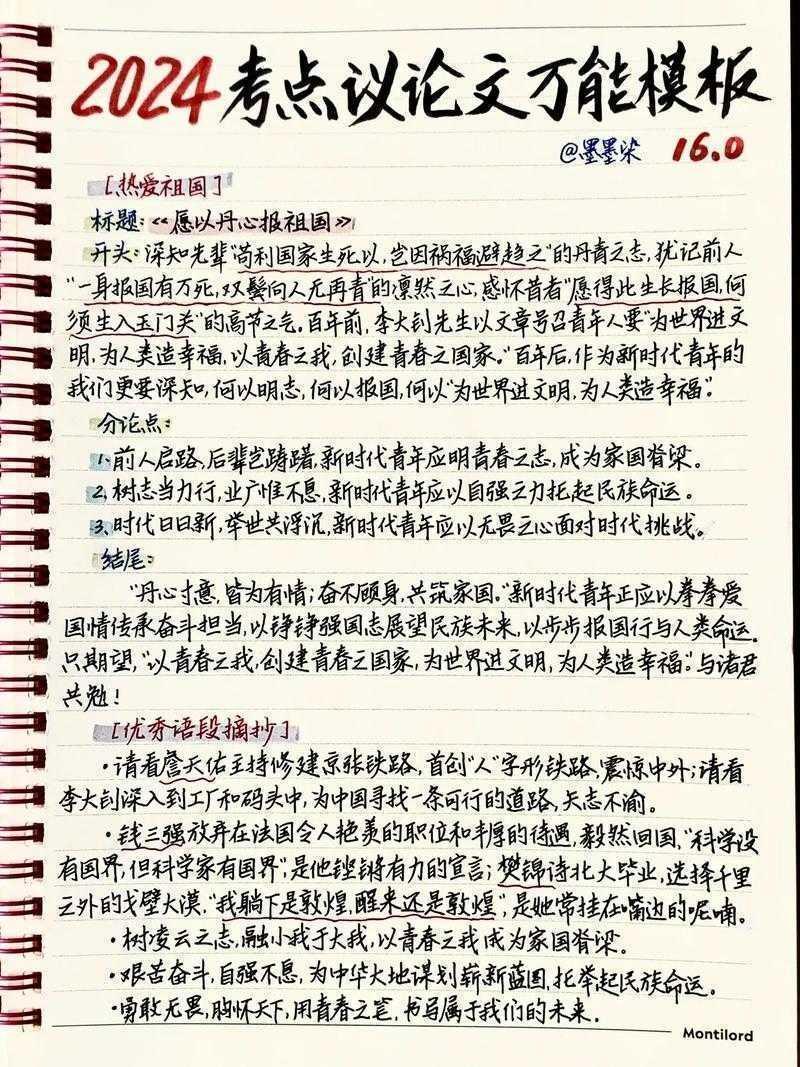 2024考点议论文万能模板
@墨墨染 16.0
[热爱祖国]
标题:《愿以丹心报祖国》
开头:深知先辈"苟利国家生死以,岂因祸福避趋之"的丹青之志,犹记前人
"一身报国有万死,双鬓向人无再青"的凛然之心,感怀昔者"愿得此生长报国,何
须生入玉门关"的高节之气。百年前,李大钊先生以文章号召青年人要"为世界进文
明,为人类造幸福,以青春之我,创建青春之国家。"百年后,作为新时代青年的
我们更要深知,何以明志,何以报国,何以"为世界进文明,为人类造幸福"。
分论点:
1.前人启路,后辈岂踌躇,新时代青年应明青春之志,成为家国脊梁。
2.树志当力行,业广惟不息,新时代青年应以自强之力托起民族命运。
3.时代日日新,举世共浮沉,新时代青年应以无畏之心面对时代挑战。
结尾:
"丹心寸意,皆为有情;奋不顾身,共筑家国。"新时代青年正应以拳拳爱
国情传承奋斗担当,以铮铮强国志展望民族未来,以步步报国行与人类命运。
只期望,"以青春之我,创建青春之国家,为世界进文明,为人类造幸福"。与诸君
共勉!
[优秀语段摘抄]
·请看詹天佑主持修建京张铁路,首创"人"字形铁路,震惊中外;请看
李大钊深入到工厂和码头中,为中国寻找一条可行的道路,矢志不渝。
·钱三强放弃在法国令人艳羡的职位和丰厚的待遇,毅然回国,"科学没
有国界,但科学家有国界"是他铿锵有力的宣言;樊锦诗北大毕业,选择千里
之外的戈壁大漠,"我躺下是敦煌,醒来还是敦煌",是她常挂在嘴边的呢喃。
·树凌云之志,融小我于大我,以青春之我成为家国脊梁。
·艰苦奋斗,自强不息,为中华大地谋划崭新蓝图,托举起民族命运。
·勇敢无畏,胸怀天下,用青春之笔,书写属于我们的未来.
Montilord